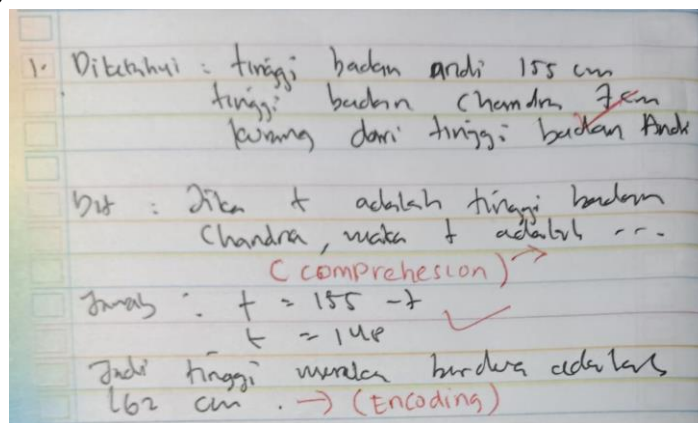 1. Diketahui : tinggi badan andi 155 cm
tinggi badan Chandra 7 cm
kurang dari tinggi badan Andi
Dit : Jika t adalah tinggi badan
Chandra, maka t adalah ...
(comprehesion)
Jawab : t = 155 - 7
t = 148
Jadi tinggi mereka berdua adalah
162 cm . → (Encoding)